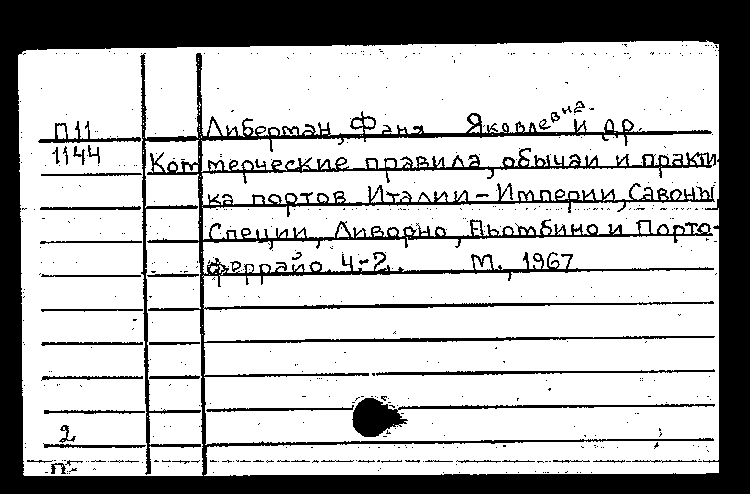 П11 Либерман, Фаня Яковлевна и др.
1144 Коммерческие правила, обычаи и практи
ка портов Италии - Империи, Савоны,
Специи, Ливорно, Пьомбино и Порто-
феррайо. Ч.-2. М., 1967
2